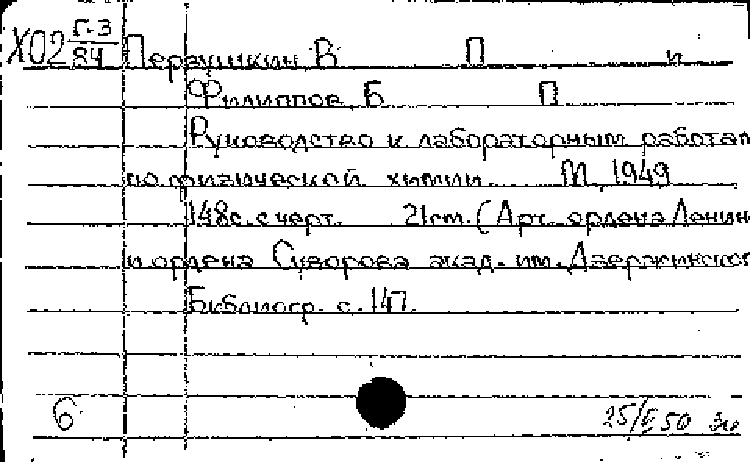 Х02 Г-3/84 Первушкин В П и
Филиппов, Б П
Руководство к лабораторным работам
по физической химии М, 1949
148с. с черт. 21см. (Арт. ордена Ленин
и ордена Суворова акад. им. Дзержинског
Библиогр. с. 147.
6 25/ 50